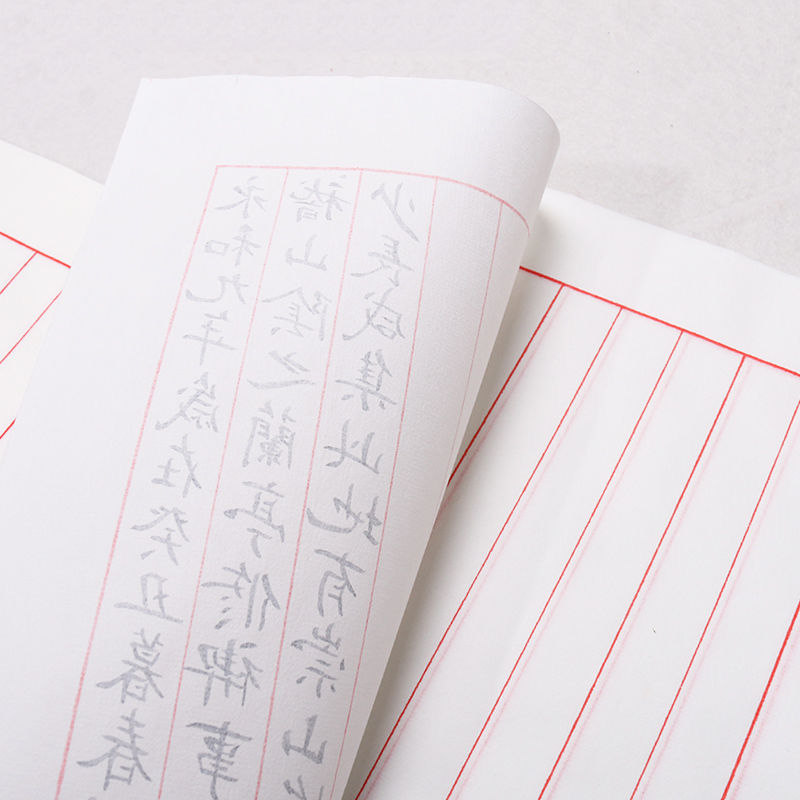 永和九年歲在癸丑暮春
稽山陰之蘭亭修禊事
少長咸集此地有崇山